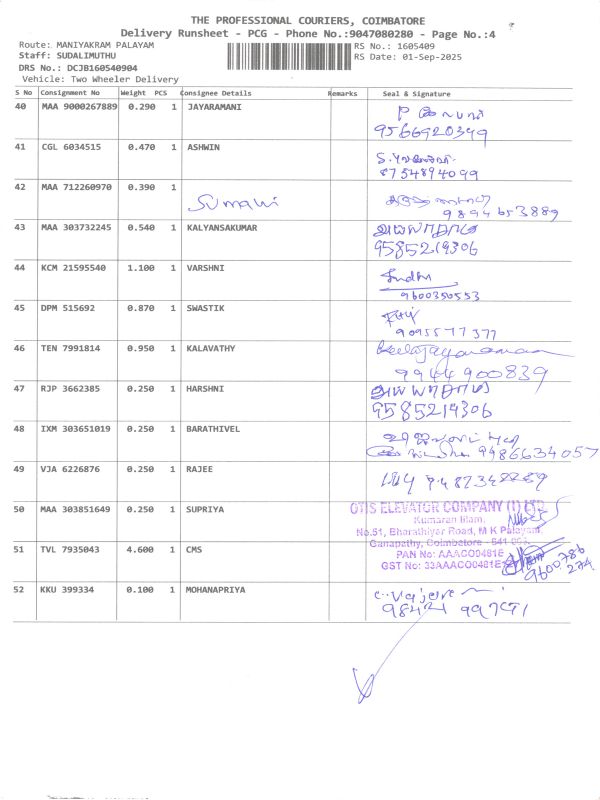 THE PROFESSIONAL COURIERS, COIMBATORE
Delivery Runsheet - PCG - Phone No.:9047080280 - Page No.:4
Route: MANIYAKRAM PALAYAM
RS No.: 1605409
Staff: SUDALIMUTHU
RS Date: 01-Sep-2025
DRS No.: DCJB160540904
Vehicle: Two Wheeler Delivery
S No Consignment No Weight PCS Consignee Details Remarks Seal & Signature
40 MAA 9000267889 0.290 1 JAYARAMANI
9566920349
41 CGL 6034515 0.470 1 ASHWIN
8754894099
42 MAA 712260970 0.390 1 Sumani
9894653889
43 MAA 303732245 0.540 1 KALYANSAKUMAR
9585219306
44 KCM 21595540 1.100 1 VARSHNI
9600350553
45 DPM 515692 0.870 1 SWASTIK
9095577377
46 TEN 7991814 0.950 1 KALAVATHY
9944900839
47 RJP 3662385 0.250 1 HARSHNI
9585219306
48 IXM 303651019 0.250 1 BARATHIVEL
9486634057
49 VJA 6226876 0.250 1 RAJEE
50 MAA 303851649 0.250 1 SUPRIYA
OTIS ELEVATOR COMPANY (I) LTD.
Kumaran Illam,
No.51, Bharathiyar Road, M K Palayam,
Ganapathy, Coimbatore - 641 006.
PAN No: AAACO0481E
GST No: 33AAACO0481E
51 TVL 7935043 4.600 1 CMS
9600786
274
52 KKU 399334 0.100 1 MOHANAPRIYA